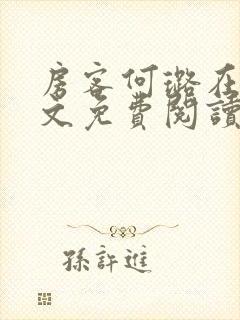 房客何璐在
文免費閱讀
孫許進